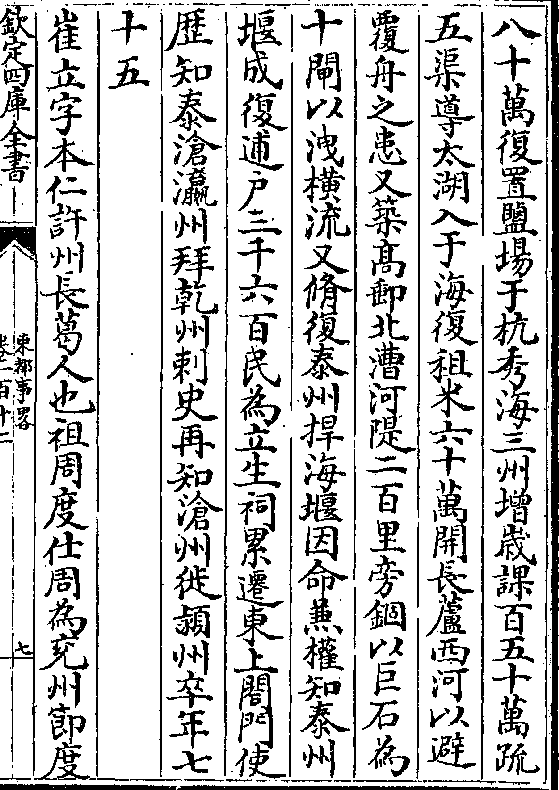 八十萬復置鹽場于杭秀海三州增歲課百五十萬疏
五渠導太湖入于海復租米六十萬開長蘆西河以避
覆舟之患又築髙郵北漕河隄二百里旁錮以巨石為
十閘以洩横流又脩復泰州捍海堰因命兼權知泰州
堰成復逋户三千六百民為立生祠累遷東上閤門使
歴知泰滄瀛州拜乾州刺史再知滄州徙潁州卒年七
十五
崔立字本仁許州長葛人也祖周度仕周為兖州節度
欽定四庫全書
東都事畧
卷一百十二
七